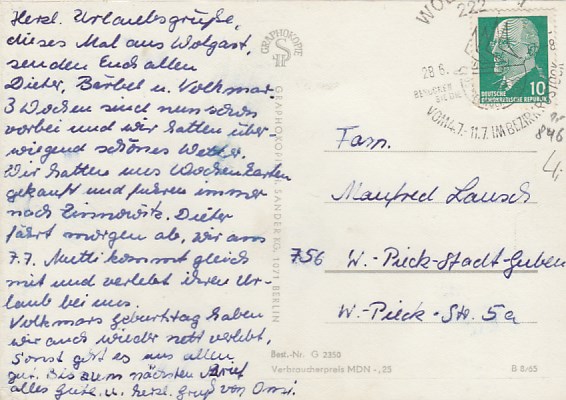 Herzl. Urlaubsgrüße,
dieses Mal aus Wolgast,
senden Euch allen
Dieter, Bärbel u. Volkmar.
3 Wochen sind nun schon
vorbei und wir hatten über-
wiegend schönes Wetter.
Wir hatten uns Wochenkarten
gekauft und fuhren immer
nach Zinnowitz. Dieter
fährt morgen ab, wir am
7.7. Mutti kommt gleich
mit und verlebt ihren Ur-
laub bei uns.
Volkmars Geburtstag haben
wir auch wieder nett verlebt.
Sonst geht es uns allen
gut. Bis zum nächsten Brief
alles Gute u. herzl. Gruß von
GRAPHOKOPIE
GRAPHOKOPIE H. SANDER KG, 1071 BERLIN
222
28.6.
VOM 4.7.-11.7. IM BEZIRK ROSTOCK
DEUTSCHE
DEMOKRATISCHE REPUBLIK
10
846
Fam.
Manfred Lausch
756 W.-Pieck-Stadt-Guben
W.-Pieck-Str. 5a
Best.-Nr. G 2350
Verbraucherpreis MDN -,25
B 8/65